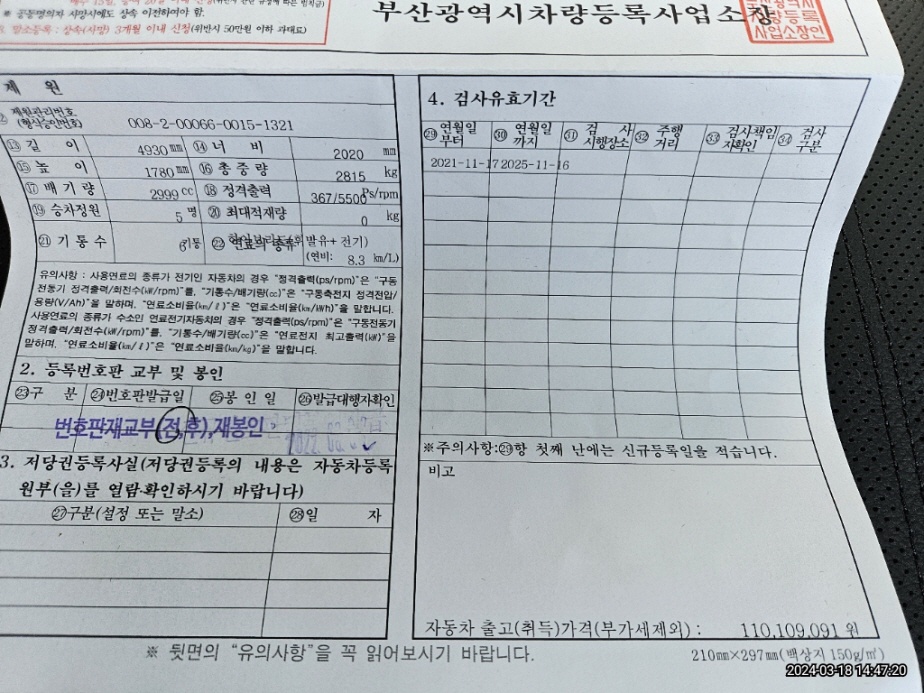 ※ 공동명의자 사망시에도 상속 이전하여야 함.
3. 말소등록 : 상속(사망) 3개월 이내 신청(위반시 50만원 이하 과태료)
부산광역시차량등록사업소장
제 원
제원관리번호
(형식승인번호)
008-2-00066-0015-1321
⑬ 길 이 4930 mm ⑭ 너 비 2020 mm
⑮ 높 이 1780 mm ⑯ 총 중 량 2815 kg
⑰ 배 기 량 2999 cc ⑱ 정격출력 367/5500 Ps/rpm
⑲ 승차정원 5 명 ⑳ 최대적재량 0 kg
㉑ 기 통 수 6 기통 ㉒ 연료의 종류 발유+ 전기)
(연비: 8.3 km/L)
유의사항 : 사용연료의 종류가 전기인 자동차의 경우 "정격출력(ps/rpm)"은 "구동
전동기 정격출력/회전수(kW/rpm)"를, "기통수/배기량(cc)"은 "구동축전지 정격전압/
용량(V/Ah)"을 말하며, "연료소비율(km/ℓ)"은 "연료소비율(km/kWh)"을 말합니다.
사용연료의 종류가 수소인 연료전기자동차의 경우 "정격출력(ps/rpm)"은 "구동전동기
정격출력/회전수(kW/rpm)"를, "기통수/배기량(cc)"은 "연료전지 최고출력(kW)"을
말하며, "연료소비율(km/ℓ)"은 "연료소비율(km/kg)"을 말합니다.
2. 등록번호판 교부 및 봉인
㉓구 분 ㉔번호판발급일 ㉕봉 인 일 ㉖발급대행자확인
번호판재교부(전,후),재봉인
3. 저당권등록사실(저당권등록의 내용은 자동차등록
원부(을)를 열람·확인하시기 바랍니다)
㉗구분(설정 또는 말소) ㉘일 자
4. 검사유효기간
㉙ 연월일 부터 ㉚ 연월일 까지 ㉛ 검 사 시행장소 ㉜ 주행 거리 ㉝ 검사책임 자확인 ㉞ 검사 구분
2021-11-17 2025-11-16
※주의사항:㉙항 첫째 난에는 신규등록일을 적습니다.
비고
자동차 출고(취득)가격(부가세제외) : 110,109,091 원
※ 뒷면의 "유의사항"을 꼭 읽어보시기 바랍니다.
210mm×297mm(백상지 150g/㎡)
2024-03-18 14:47:20